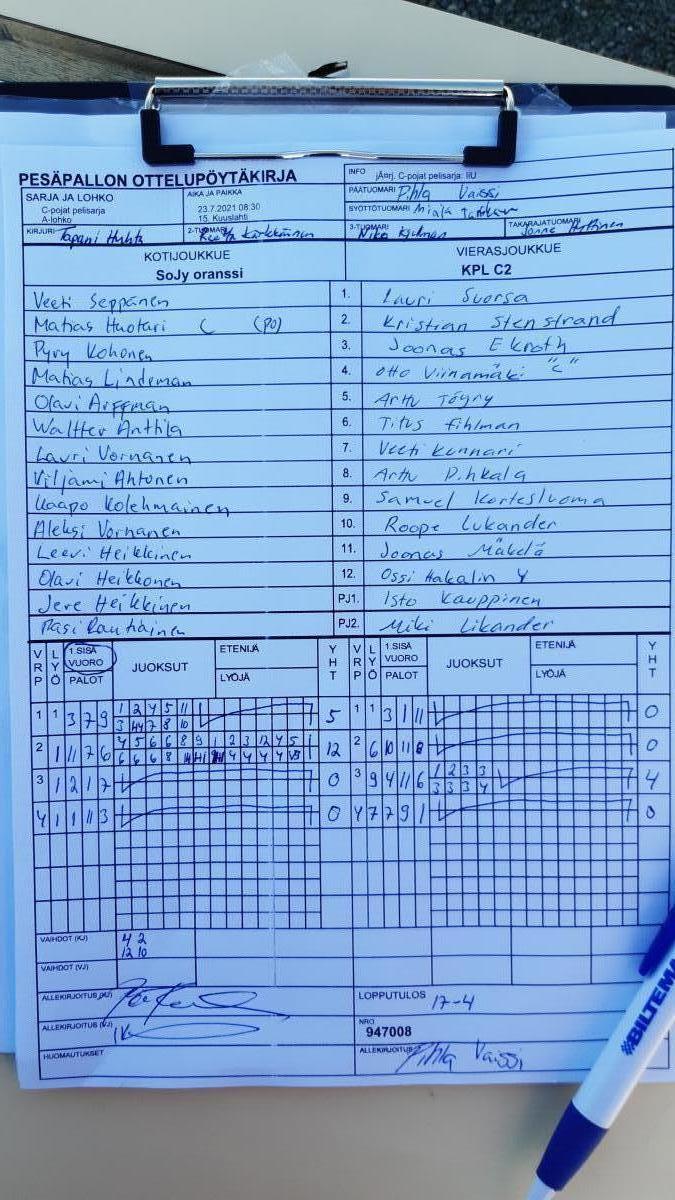 PESÄPALLON OTTELUPÖYTÄKIRJA
INFO jÄnrj. C-pojat pelisarja: IIU
SARJA JA LOHKO
C-pojat pelisarja
A-lohko
AIKA JA PAIKKA
23.7.2021 08:30
15. Kuuslahti
PÄÄTUOMARI Pihla Vaissi
SYÖTTÖTUOMARI
KIRJURI Tapani Huhta
2-TUOMARI Reetta Kärkkäinen
3-TUOMARI Niko
TAKARAJATUOMARI
KOTIJOUKKUE
SoJy oranssi
VIERASJOUKKUE
KPL C2
Veeti Seppänen 1. Lauri Suorsa
Matias Huotari C (PO) 2. Kristian Stenstrand
Pyry Kohonen 3. Joonas Ekroth
Matias Lindeman 4. Otto Viinamäki "C"
Olavi Arffman 5. Arttu Töyry
Waltter Anttila 6. Titus Fihlman
Lauri Vornanen 7. Veeti Kunnari
Viljami Ahtonen 8. Arttu Pihkala
Kaapo Kolehmainen 9. Samuel Kortesluoma
Aleksi Vornanen 10. Roope Lukander
Leevi Heikkinen 11. Joonas Mäkelä
Olavi Heikkonen 12. Ossi Hakalin Y
Jere Heikkinen PJ1. Isto Kauppinen
Pasi Rautiainen PJ2. Miki Likander
VRP LYÖ 1.SISÄ VUORO PALOT JUOKSUT ETENIJÄ LYÖJÄ YHT VRP LYÖ 1.SISÄ VUORO PALOT JUOKSUT ETENIJÄ LYÖJÄ YHT
1 1 3 7 9 1 2 4 5 11 5 1 1 3 1 11 0
3 7 8 10
2 1 11 7 6 4 5 6 6 8 9 1 2 3 12 4 5 12 2 6 10 11 8 0
6 6 6 8 4 4 4 4
3 1 2 1 7 0 3 9 4 11 6 1 2 3 3 4
3 3 3 4
4 1 1 11 3 0 4 7 7 9 1 0
VAIHDOT (KJ) 4 2
12 10
VAIHDOT (VJ)
ALLEKIRJOITUS (KJ)
LOPPUTULOS 17-4
ALLEKIRJOITUS (VJ)
NRO
947008
HUOMAUTUKSET
ALLEKIRJOITUS Pihla Vaissi
BILTEMA